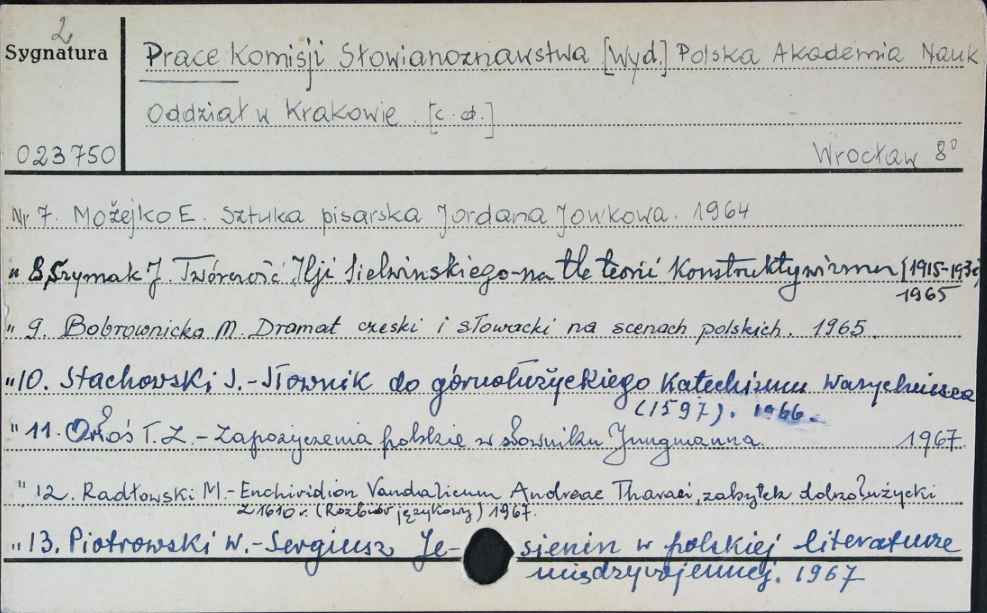 2
Sygnatura
Prace Komisji Słowianoznawstwa [Wyd.] Polska Akademia Nauk
Oddział w Krakowie. [c. d.]
023750
Wrocław 8°
Nr 7. Možejko E. Sztuka pisarska Jordana Jowkowa. 1964
" 8. Szymak J. Twórczość Ilji Sielwinskiego-na tle teorii Konstruktywizmu (1915-1930)
1965
" 9. Bobrownicka M. Dramat czeski i słowacki na scenach polskich. 1965
" 10. Stachovski S.-Słownik do górnołużyckiego Katechizmu Warychiusza
(1597). 1966.
" 11. Orłoś T. Z. - Zapożyczenia polskie w słowniku Jungmanna. 1967.
" 12. Radłowski M.- Enchiridion Vandalicum Andreae Tharaei, zabytek dolnołużycki
z 1610 r. (Rozbiór językowy) 1967.
" 13. Piotrowski W.-Sergiusz Je- sienin w polskiej literaturze
międzywojennej. 1967